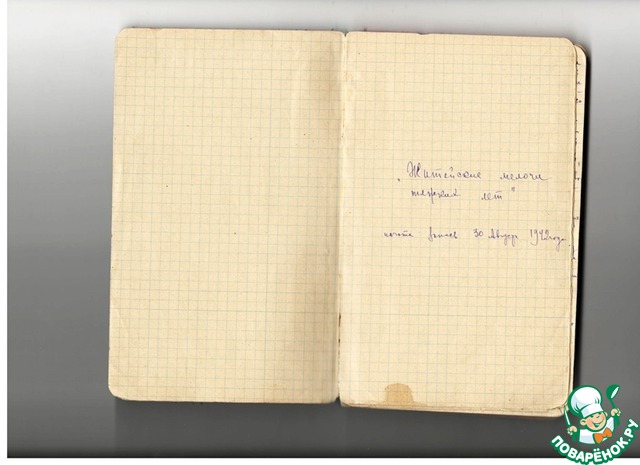 „Житейские мелочи
тяжких лет"
начата запись 30 Август 1942 года.
ПОВАРЁНОК.РУ